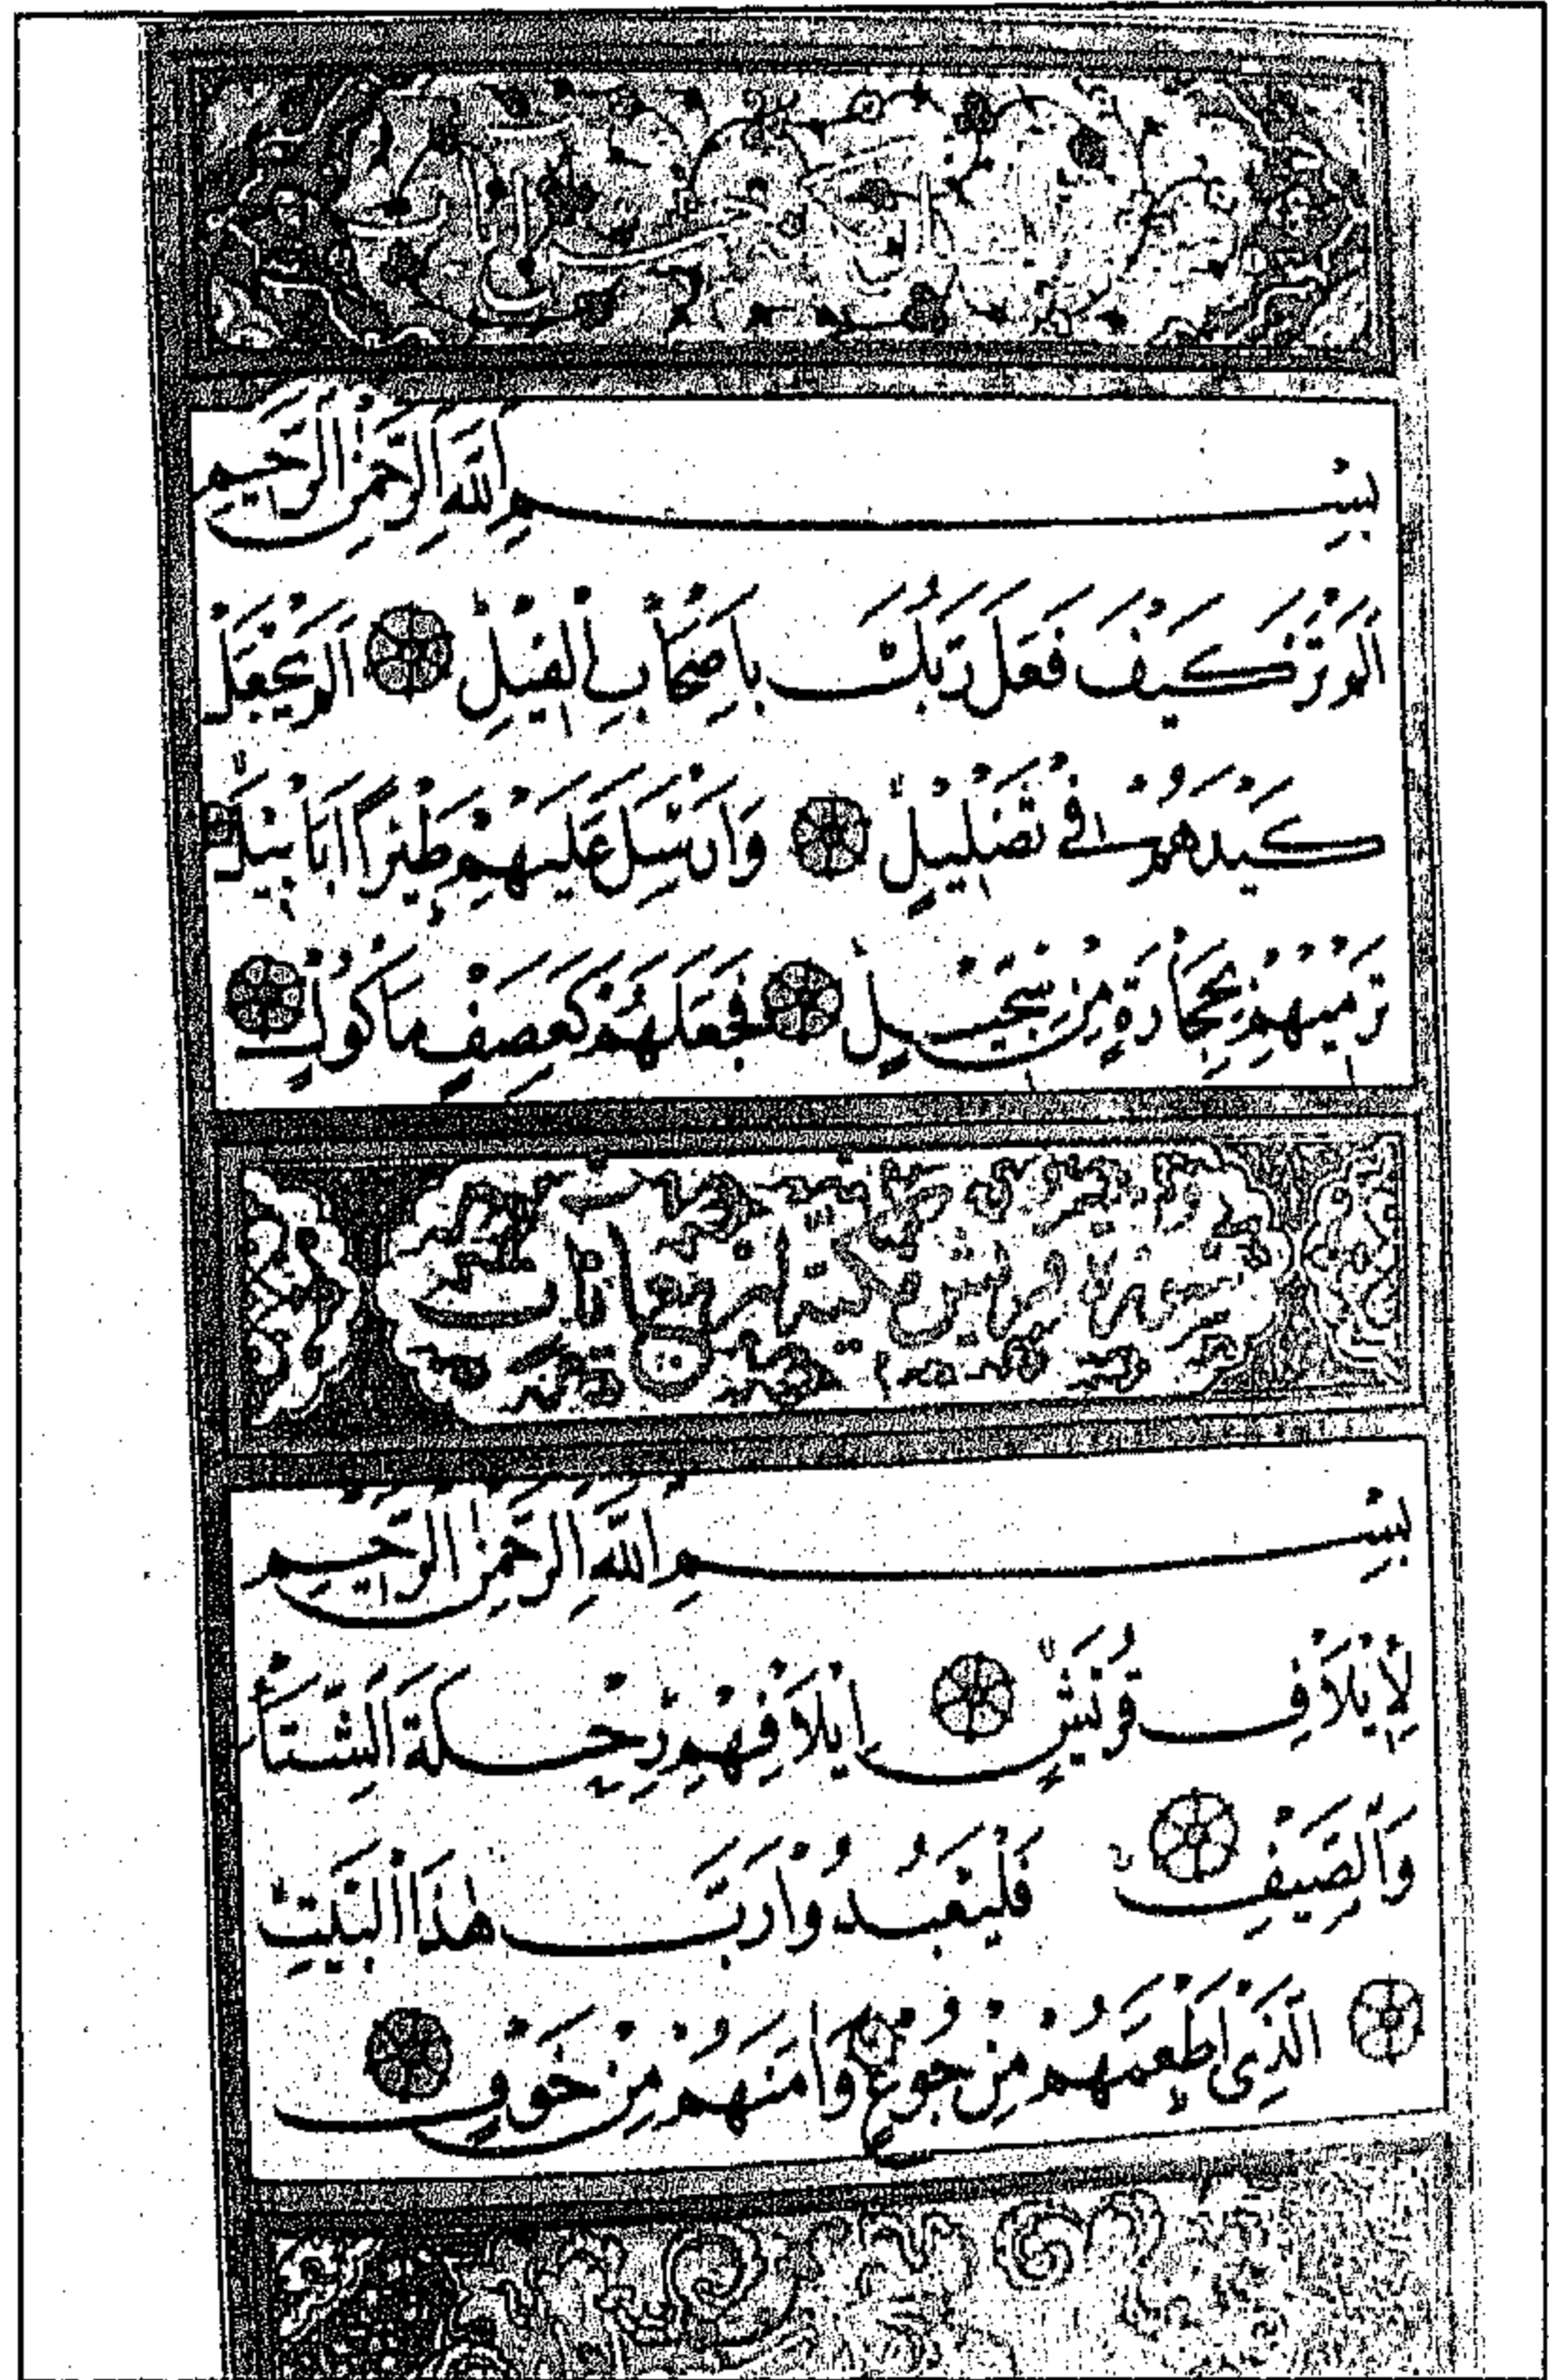 بِسْمِ اللّٰهِ الرَّحْمٰنِ الرَّحِيمِ
اَلَمْ تَرَ كَيْفَ فَعَلَ رَبُّكَ بِاَصْحَابِ الْفِيلِ اَلَمْ يَجْعَلْ
كَيْدَهُمْ فِى تَضْلِيلٍ وَاَرْسَلَ عَلَيْهِمْ طَيْرًا اَبَابِيلَ
تَرْمِيهِمْ بِحِجَارَةٍ مِنْ سِجِّيلٍ فَجَعَلَهُمْ كَعَصْفٍ مَأْكُولٍ
سورة قريش آيات
بِسْمِ اللّٰهِ الرَّحْمٰنِ الرَّحِيمِ
لِاِيلَافِ قُرَيْشٍ اِيلَافِهِمْ رِحْلَةَ الشِّتَاءِ
وَالصَّيْفِ فَلْيَعْبُدُوا رَبَّ هٰذَا الْبَيْتِ
اَلَّذِى اَطْعَمَهُمْ مِنْ جُوعٍ وَاٰمَنَهُمْ مِنْ خَوْفٍ